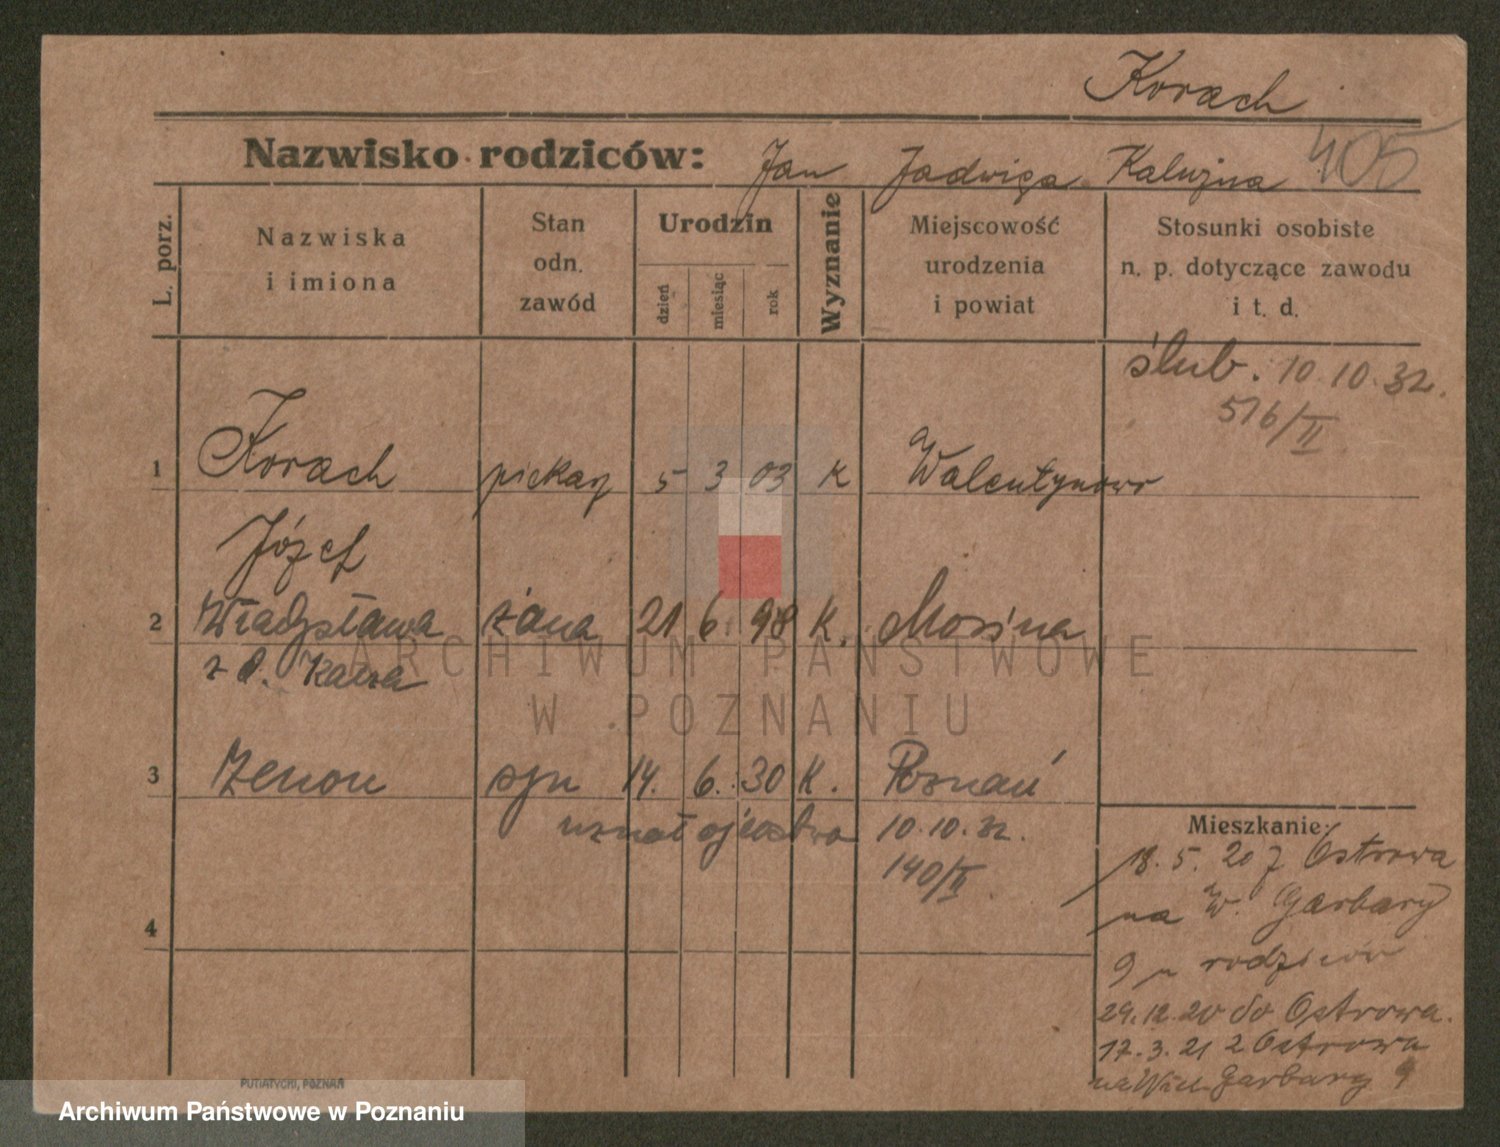 Korach
Nazwisko rodziców: Jan Jadwiga Kaluzna 405
L. porz.
Nazwiska
i imiona
Stan
odn.
zawód
Urodzin
dzień
miesiąc
rok
Wyznanie
Miejscowość
urodzenia
i powiat
Stosunki osobiste
n. p. dotyczące zawodu
i t. d.
ślub. 10.10.32.
516/II
1 Korach piekarz 5 3 03 K Walentynowo
Józef
2 Władysława żona 21 6. 98 K. Mosina
z d.
3 Zenon syn 14. 6. 30 K. Poznań
uznał ojcostwo 10.10.32.
140/II
4
Mieszkanie:
18.5.20 z Ostrowa
na W. Garbary
9 u rodziców
29.12.20 do Ostrowa.
17.3.21 z Ostrowa
na Wiel. Garbary 9
PUTIATYCKI, POZNAŃ
ARCHIWUM PAŃSTWOWE
W POZNANIU
Archiwum Państwowe w Poznaniu